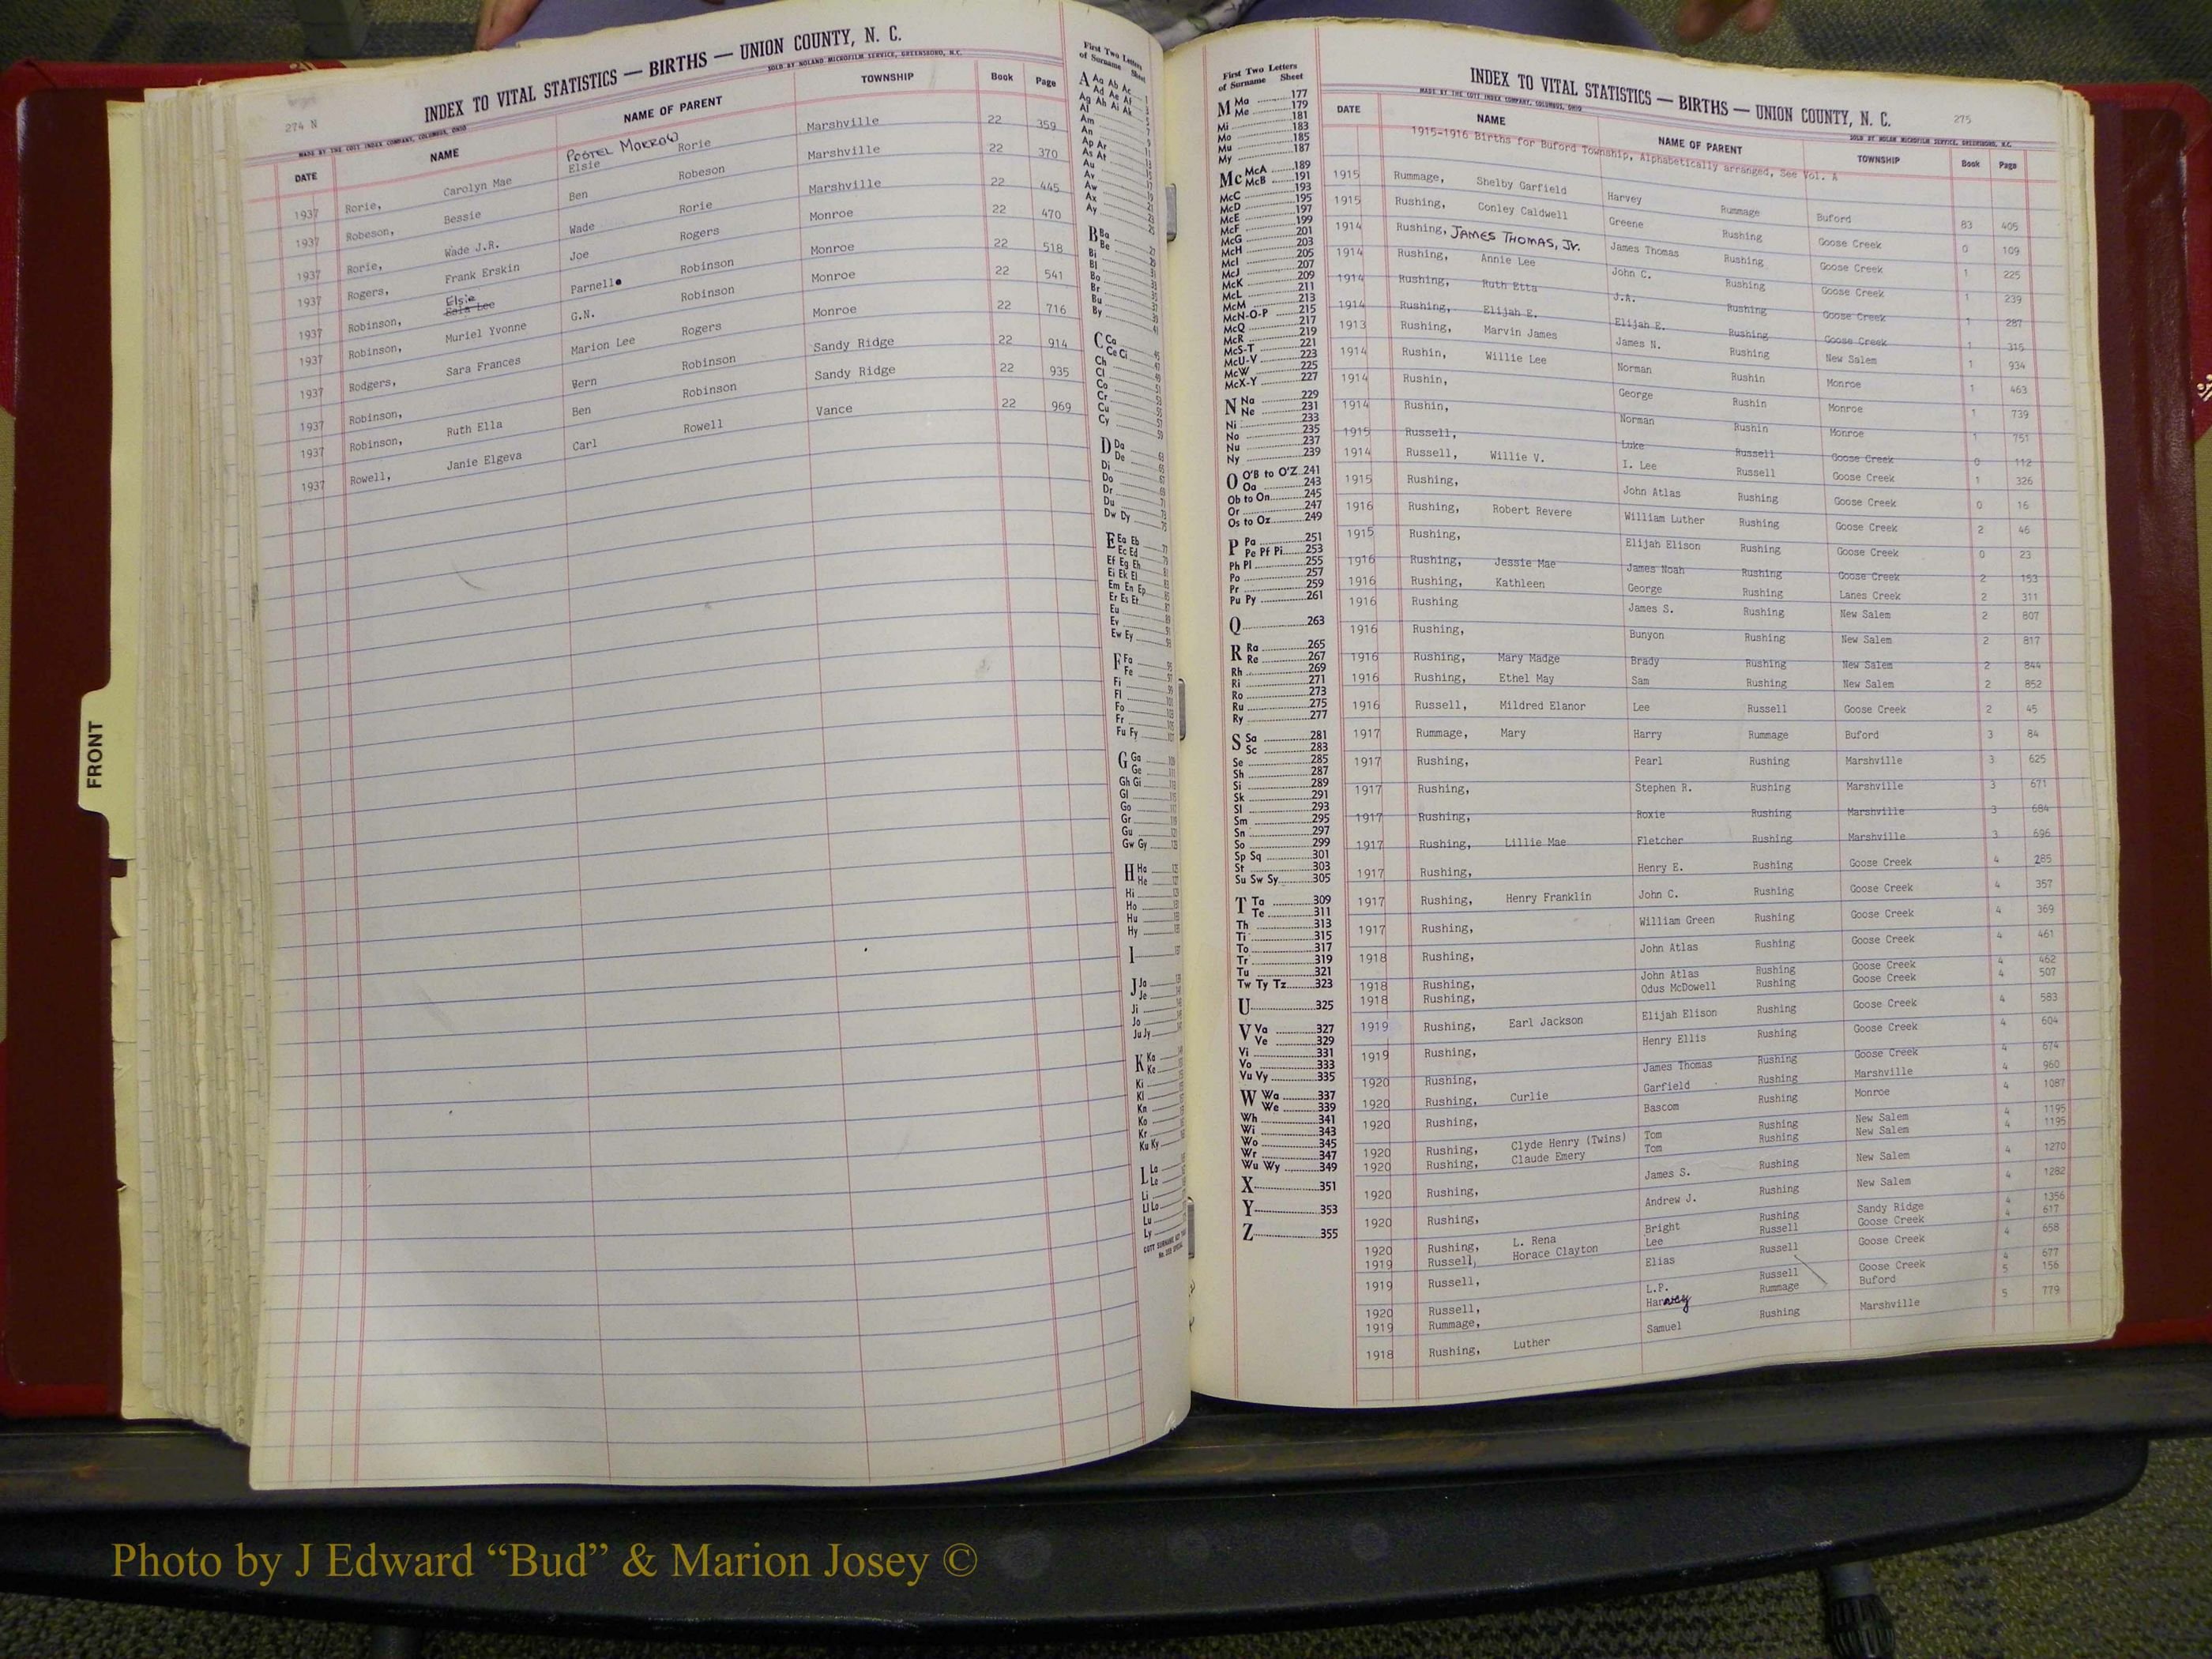 274 N
INDEX TO VITAL STATISTICS — BIRTHS — UNION COUNTY, N. C.
MADE BY THE COTT INDEX COMPANY, COLUMBUS, OHIO SOLD BY NOLAND MICROFILM SERVICE, GREENSBORO, N.C.
DATE NAME NAME OF PARENT TOWNSHIP Book Page
POSTEL MORROW
1937 Rorie, Carolyn Mae Elsie Rorie Marshville 22 359
1937 Robeson, Bessie Ben Robeson Marshville 22 370
1937 Rorie, Wade J.R. Wade Rorie Marshville 22 445
1937 Rogers, Frank Erskin Joe Rogers Monroe 22 470
Elsie
1937 Robinson, Lee Parnell Robinson Monroe 22 518
1937 Robinson, Muriel Yvonne G.N. Robinson Monroe 22 541
1937 Rodgers, Sara Frances Marion Lee Rogers Monroe 22 716
1937 Robinson, Bern Robinson Sandy Ridge 22 914
1937 Robinson, Ruth Ella Ben Robinson Sandy Ridge 22 935
1937 Rowell, Janie Elgeva Carl Rowell Vance 22 969
FRONT
First Two Letters
of Surname Sheet
A Aa Ab Ac
Ad Ae Af
Ag Ah Ai Ak
Al
Am
An
Ap Ar
As At
Au
Av
Aw
Ax
Ay
B Ba
Be
Bi
Bl
Bo
Br
Bu
By
C Ca
Ce Ci
Ch
Cl
Co
Cr
Cu
Cy
D Da
De
Di
Do
Dr
Du
Dw Dy
E Ea Eb
Ec Ed
Ef Eg Eh
Ei Ek El
Em En Ep
Er Es Et
Eu
Ev
Ew Ey
F Fa
Fe
Fi
Fl
Fo
Fr
Fu Fy
G Ga
Ge
Gh Gi
Gl
Go
Gr
Gu
Gw Gy
H Ha
He
Hi
Ho
Hu
Hy
I
J Ja
Je
Ji
Jo
Ju Jy
K Ka
Ke
Ki
Kl
Kn
Ko
Kr
Ku Ky
L La
Le
Li
Ll Lo
Lu
Ly
First Two Letters
of Surname Sheet
M Ma 177
Me 179
Mi 181
Mo 183
Mu 185
My 187
Mc McA 189
McB 191
McC 193
McD 195
McE 197
McF 199
McG 201
McH 203
McI 205
McJ 207
McK 209
McL 211
McM 213
McN-O-P 215
McQ 217
McR 219
McS-T 221
McU-V 223
McW 225
McX-Y 227
N Na 229
Ne 231
Ni 233
No 235
Nu 237
Ny 239
O O'B to O'Z 241
Oa 243
Ob to On 245
Or 247
Os to Oz 249
P Pa 251
Pe Pf Pi 253
Ph Pl 255
Po 257
Pr 259
Pu Py 261
Q 263
R Ra 265
Re 267
Rh 269
Ri 271
Ro 273
Ru 275
Ry 277
S Sa 281
Sc 283
Se 285
Sh 287
Si 289
Sk 291
Sl 293
Sm 295
Sn 297
So 299
Sp Sq 301
St 303
Su Sw Sy 305
T Ta 309
Te 311
Th 313
Ti 315
To 317
Tr 319
Tu 321
Tw Ty Tz 323
U 325
V Va 327
Ve 329
Vi 331
Vo 333
Vu Vy 335
W Wa 337
We 339
Wh 341
Wi 343
Wo 345
Wr 347
Wu Wy 349
X 351
Y 353
Z 355
INDEX TO VITAL STATISTICS — BIRTHS — UNION COUNTY, N. C. 275
MADE BY THE COTT INDEX COMPANY, COLUMBUS, OHIO SOLD BY NOLAN MICROFILM SERVICE, GREENSBORO, N.C.
DATE NAME NAME OF PARENT TOWNSHIP Book Page
1915-1916 Births for Buford Township, Alphabetically arranged, See Vol. A
1915 Rummage, Shelby Garfield Harvey Rummage Buford 83 405
1915 Rushing, Conley Caldwell Greene Rushing Goose Creek 0 109
1914 Rushing, JAMES THOMAS, JR. James Thomas Rushing Goose Creek 1 225
1914 Rushing, Annie Lee John C. Rushing Goose Creek 1 239
1914 Rushing, Ruth Etta J.A. Rushing Goose Creek 1 287
1914 Rushing, Elijah E. Elijah E. Rushing Goose Creek 1 315
1913 Rushing, Marvin James James N. Rushing New Salem 1 934
1914 Rushin, Willie Lee Norman Rushin Monroe 1 463
1914 Rushin, George Rushin Monroe 1 739
1914 Rushin, Norman Rushin Monroe 1 751
1915 Russell, Luke Russell Goose Creek 0 112
1914 Russell, Willie V. I. Lee Russell Goose Creek 1 326
1915 Rushing, John Atlas Rushing Goose Creek 0 16
1916 Rushing, Robert Revere William Luther Rushing Goose Creek 2 46
1915 Rushing, Elijah Elison Rushing Goose Creek 0 23
1916 Rushing, Jessie Mae James Noah Rushing Goose Creek 2 153
1916 Rushing, Kathleen George Rushing Lanes Creek 2 311
1916 Rushing James S. Rushing New Salem 2 807
1916 Rushing, Bunyon Rushing New Salem 2 817
1916 Rushing, Mary Madge Brady Rushing New Salem 2 844
1916 Rushing, Ethel May Sam Rushing New Salem 2 852
1916 Russell, Mildred Elanor Lee Russell Goose Creek 2 45
1917 Rummage, Mary Harry Rummage Buford 3 84
1917 Rushing, Pearl Rushing Marshville 3 625
1917 Rushing, Stephen R. Rushing Marshville 3 671
1917 Rushing, Roxie Rushing Marshville 3 684
1917 Rushing, Lillie Mae Fletcher Rushing Marshville 3 696
1917 Rushing, Henry E. Rushing Goose Creek 4 285
1917 Rushing, Henry Franklin John C. Rushing Goose Creek 4 357
1917 Rushing, William Green Rushing Goose Creek 4 369
1918 Rushing, John Atlas Rushing Goose Creek 4 461
1918 Rushing, John Atlas Rushing Goose Creek 4 462
1918 Rushing, Odus McDowell Rushing Goose Creek 4 507
1919 Rushing, Earl Jackson Elijah Elison Rushing Goose Creek 4 583
1919 Rushing, Henry Ellis Rushing Goose Creek 4 604
1920 Rushing, James Thomas Rushing Goose Creek 4 674
1920 Rushing, Curlie Garfield Rushing Marshville 4 960
1920 Rushing, Bascom Rushing Monroe 4 1087
1920 Rushing, Clyde Henry (Twins) Tom Rushing New Salem 4 1195
1920 Rushing, Claude Emery Tom Rushing New Salem 4 1195
1920 Rushing, James S. Rushing New Salem 4 1270
1920 Rushing, Andrew J. Rushing New Salem 4 1282
1920 Rushing, L. Rena Bright Rushing Sandy Ridge 4 1356
1919 Russell, Horace Clayton Lee Russell Goose Creek 4 617
1919 Russell, Elias Russell Goose Creek 4 658
1920 Russell, L.P. Russell Goose Creek 4 677
1919 Rummage, Harvey Rummage Buford 5 156
1918 Rushing, Luther Samuel Rushing Marshville 5 779
Photo by J Edward “Bud” & Marion Josey ©